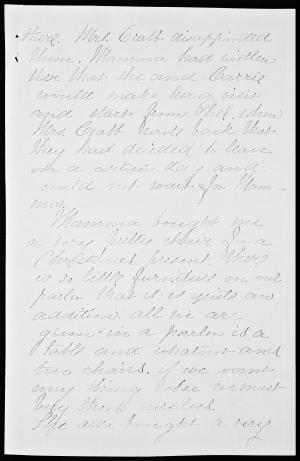 there. Mrs. Crabb disappointed
them. Mamma had written
her that she and Carrie
would make her a visit
and start from Phil. when
Mrs. Crabb wrote back that
they had decided to leave
on a certain day and
could not wait for Mam-
ma.
Mamma bought me
a very pretty chair for a
Christmas present. There
is so little furniture in our
parlor that it is quite an
addition. all we are
given in a parlor is a
table and whatnot and
two chairs. if we want
any thing else we must
buy them ourselves.
She also bought a very